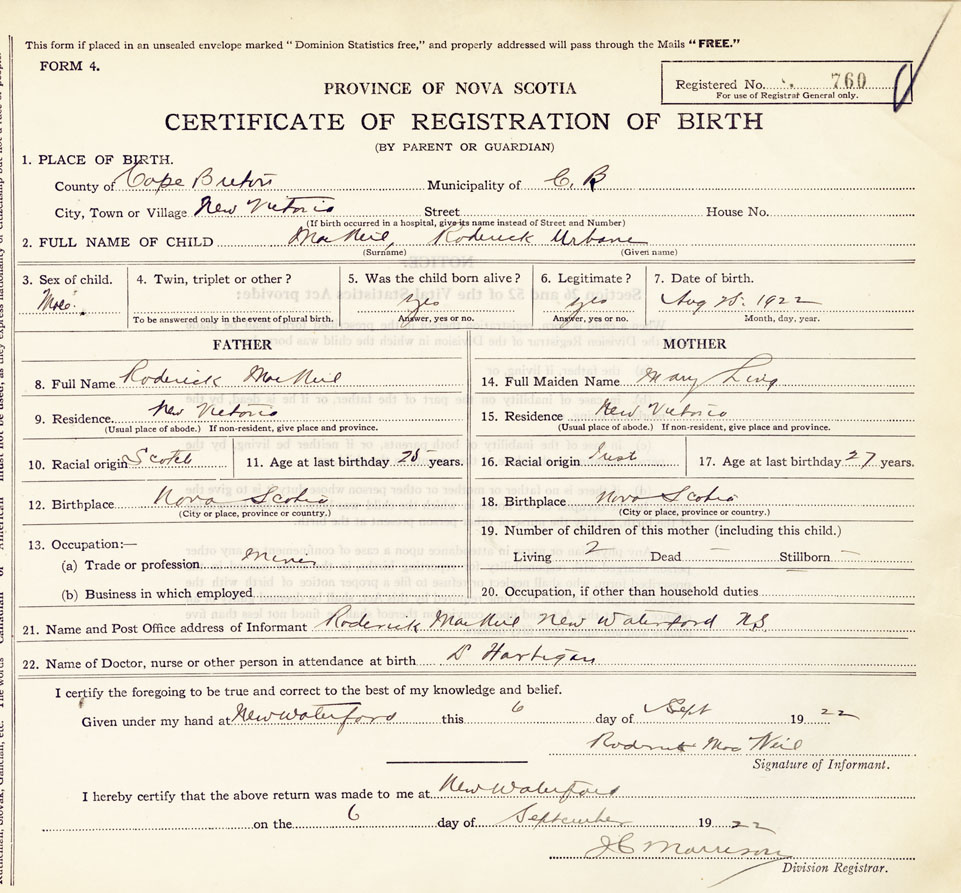 This form if placed in an unsealed envelope marked "Dominion Statistics free," and properly addressed will pass through the Mails "FREE."
FORM 4.
Registered No. 760
For use of Registrar General only.
PROVINCE OF NOVA SCOTIA
CERTIFICATE OF REGISTRATION OF BIRTH
(BY PARENT OR GUARDIAN)
1. PLACE OF BIRTH.
County of Cape Breton Municipality of C. B
City, Town or Village New Victoria Street House No.
(If birth occurred in a hospital, give its name instead of Street and Number)
2. FULL NAME OF CHILD MacNeil, Roderick Urbane
(Surname) (Given name)
3. Sex of child. 4. Twin, triplet or other? 5. Was the child born alive? 6. Legitimate? 7. Date of birth.
Male. yes yes Aug 28. 1922
To be answered only in the event of plural birth. Answer, yes or no. Answer, yes or no. Month, day, year.
FATHER MOTHER
8. Full Name Roderick MacNeil 14. Full Maiden Name Mary
9. Residence. New Victoria 15. Residence New Victoria
(Usual place of abode.) If non-resident, give place and province. (Usual place of abode.) If non-resident, give place and province.
10. Racial origin Scotch 11. Age at last birthday years. 16. Racial origin 17. Age at last birthday 27 years.
12. Birthplace Nova Scotia 18. Birthplace Nova Scotia
(City or place, province or country.) (City or place, province or country.)
19. Number of children of this mother (including this child.)
13. Occupation:— Living 2 Dead — Stillborn —
(a) Trade or profession Miner
(b) Business in which employed 20. Occupation, if other than household duties —
21. Name and Post Office address of Informant Roderick MacNeil New Waterford N.S
22. Name of Doctor, nurse or other person in attendance at birth D Hartigan
I certify the foregoing to be true and correct to the best of my knowledge and belief.
Given under my hand at New Waterford this 6 day of Sept 1922
Roderick MacNeil
Signature of Informant.
I hereby certify that the above return was made to me at New Waterford
on the 6 day of September 1922
J C Morrison
Division Registrar.